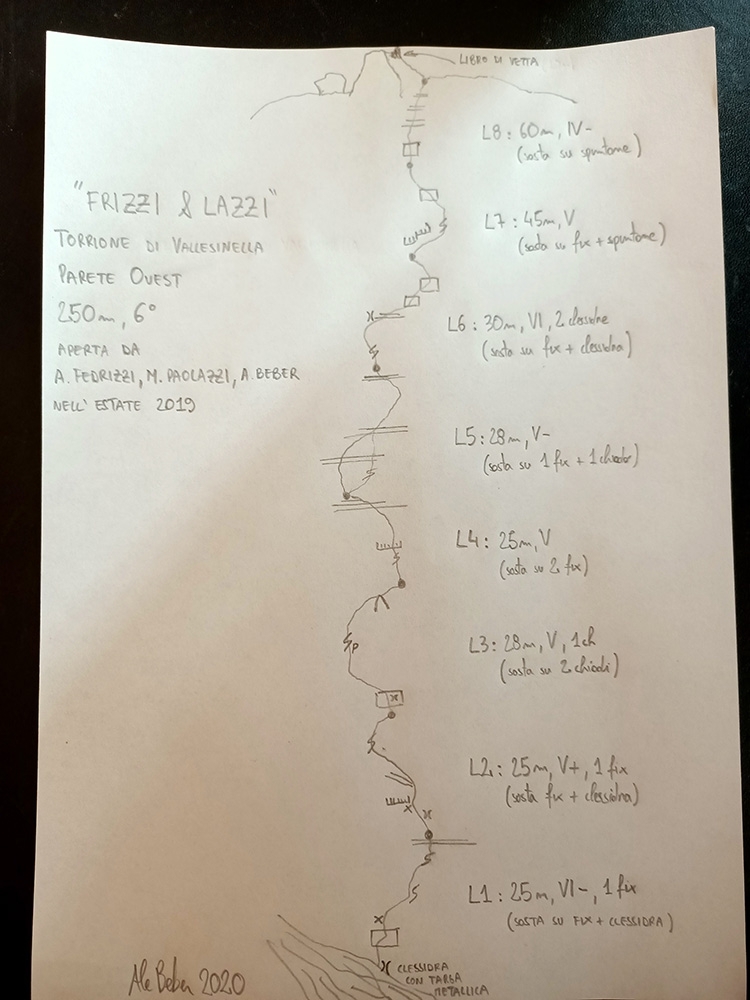 LIBRO DI VETTA
L8: 60m, IV-
(sosta su spuntone)
"FRIZZI & LAZZI"
TORRIONE DI VALLESINELLA
PARETE OVEST
250m, 6°
APERTA DA
A. FEDRIZZI, M. PAOLAZZI, A. BEBER
NELL'ESTATE 2019
L7: 45m, V
(sosta su fix + spuntone)
L6: 30m, VI, 2 clessidre
(sosta su fix + clessidra)
L5: 28m, V-
(sosta su 1 fix + 1 chiodo)
L4: 25m, V
(sosta su 2 fix)
P
L3: 28m, V, 1ch
(sosta su 2 chiodi)
L2: 25m, V+, 1 fix
(sosta fix + clessidra)
L1: 25m, VI-, 1 fix
(SOSTA SU FIX + CLESSIDRA)
CLESSIDRA
CON TARGA
METALLICA
Ale Beber 2020